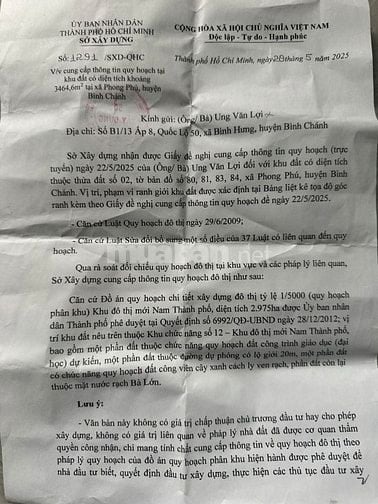 ỦY BAN NHÂN DÂN
THÀNH PHỐ HỒ CHÍ MINH
SỞ XÂY DỰNG
CỘNG HÒA XÃ HỘI CHỦ NGHĨA VIỆT NAM
Độc lập - Tự do - Hạnh phúc
Số: 1291 /SXD-QHC
Thành phố Hồ Chí Minh, ngày 28 tháng 5 năm 2025
V/v cung cấp thông tin quy hoạch tại
khu đất có diện tích khoảng
3464,6m² tại xã Phong Phú, huyện
Bình Chánh
Kính gửi: (Ông/ Bà) Ung Văn Lợi
Địa chỉ: Số B1/13 Ấp 8, Quốc Lộ 50, xã Bình Hưng, huyện Bình Chánh
Sở Xây dựng nhận được Giấy đề nghị cung cấp thông tin quy hoạch (trực
tuyến) ngày 22/5/2025 của (Ông/ Bà) Ung Văn Lợi đối với khu đất có diện tích
thuộc thửa đất số 02, tờ bản đồ số 80, 81, 83, 84, xã Phong Phú, huyện Bình
Chánh. Vị trí, phạm vi ranh giới khu đất được xác định tại Bảng liệt kê tọa độ góc
ranh kèm theo Giấy đề nghị cung cấp thông tin quy hoạch đề ngày 22/5/2025.
- Căn cứ Luật Quy hoạch đô thị ngày 29/6/2009;
- Căn cứ Luật Sửa đổi bổ sung một số điều của 37 Luật có liên quan đến quy
hoạch.
Qua rà soát đối chiếu quy hoạch đô thị tại khu vực và các pháp lý liên quan,
Sở Xây dựng cung cấp thông tin quy hoạch đô thị như sau:
Căn cứ Đồ án quy hoạch chi tiết xây dựng đô thị tỷ lệ 1/5000 (quy hoạch
phân khu) Khu đô thị mới Nam Thành phố, diện tích 2.975ha được Ủy ban nhân
dân Thành phố phê duyệt tại Quyết định số 6992/QĐ-UBND ngày 28/12/2012; vị
trí khu đất nêu trên thuộc Khu chức năng số 12 – Khu đô thị mới Nam Thành phố,
bao gồm một phần đất thuộc chức năng quy hoạch đất công trình giáo dục (đại
học) dự kiến, một phần đất thuộc đường dự phóng có lộ giới 20m, một phần đất
có chức năng quy hoạch đất công viên cây xanh cách ly ven rạch, phần đất còn lại
thuộc mặt nước rạch Bà Lớn.
Lưu ý:
- Văn bản này không có giá trị chấp thuận chủ trương đầu tư hay cho phép
xây dựng, không có giá trị liên quan về pháp lý nhà đất đã được cơ quan thẩm
quyền công nhận, chỉ mang tính chất cung cấp thông tin về quy hoạch đô thị theo
pháp lý quy hoạch của đồ án quy hoạch phân khu hiện hành được phê duyệt để
nhà đầu tư biết, quyết định đầu tư xây dựng, thực hiện các thủ tục đầu tư xây